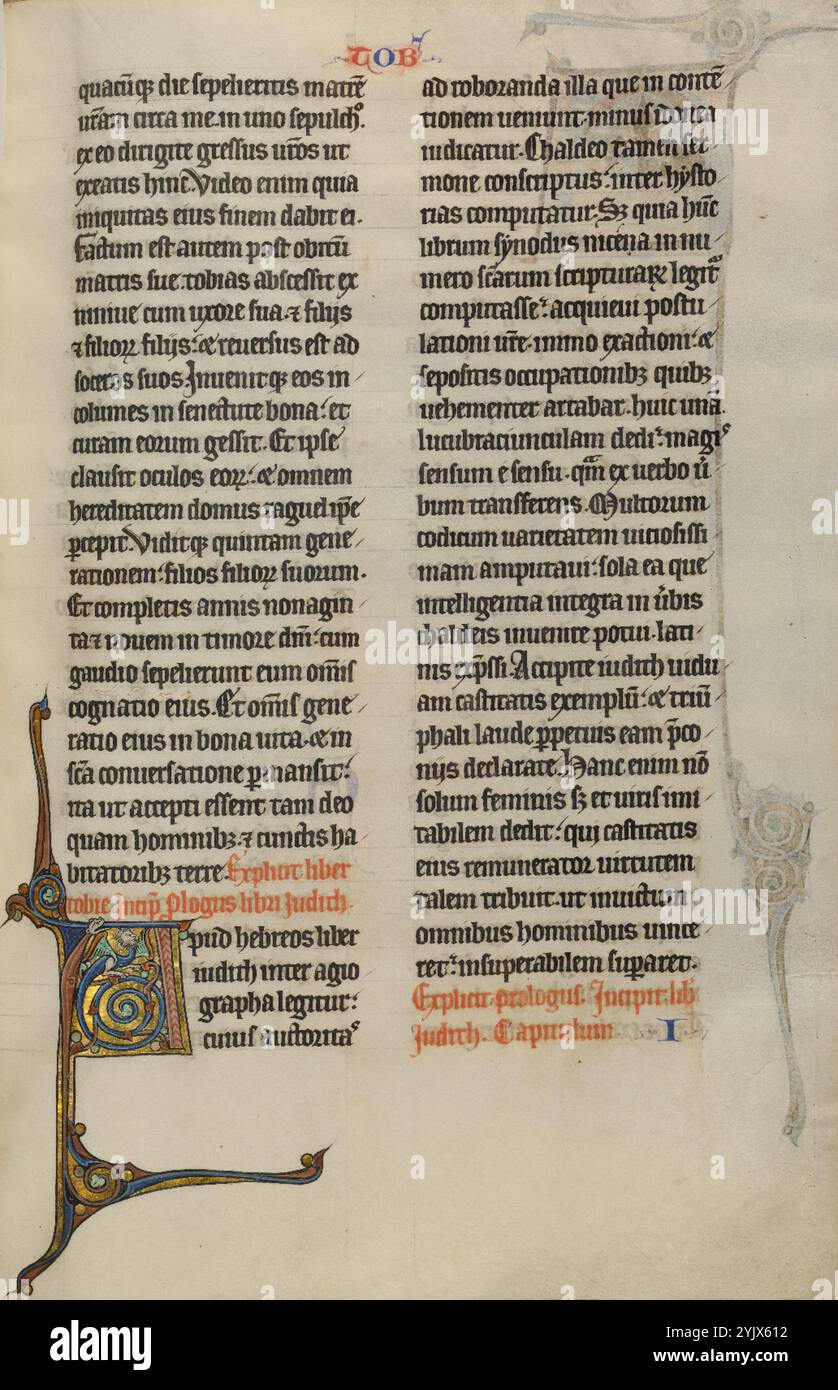 TOB
quacūqꝫ die sepelieritis matrē
vr̄am circa me in uno sepulch᷒.
ex eo dirigite gressus vr̄os ut
exeatis hinc. Video enim quia
iniquitas eius finem dabit ei.
Factum est autem post obitū
matris sue. tobias abscessit ex
niniue cum uxore sua. ⁊ filijs
⁊ filioꝝ filijs. ⁊ reuersus est ad
soceros suos. Inuenitqꝫ eos in
columes in senectute bona. et
curam eorum gessit. Et ipse
clausit oculos eoꝝ. ⁊ omnem
hereditatem domus raguel ip̄e
ꝑcepit. Viditqꝫ quintam gene
rationem. filios filioꝝ suorum.
Et completis annis nonagin
ta ⁊ nouem in timore dn̄i. cum
gaudio sepelierunt eum om̄is
cognatio eius. Et om̄is gene
ratio eius in bona uita. ⁊ in
sc̄a conuersatione ꝑmansit.
ita ut accepti essent tam deo
quam hominibꝫ. ⁊ cunctis ha
bitatoribꝫ terre. Explicit liber
tobie. Incip̄ Plogus libri Judith.
Apud hebreos liber
iudith inter agio
grapha legitur.
cuius auctorita᷒
ad roboranda illa que in contē
tionem ueniunt. minus idonea
iudicatur. Chaldeo tamen ser
mone conscriptus. inter hysto
rias computatur. Sꝫ quia hūc
librum synodus nicena in nu
mero sc̄arum scripturaꝝ legit᷑
computasse. acquieui postu
lationi vr̄e. immo exactioni. ⁊
sepositis occupationibꝫ quibꝫ
uehementer artabar. huic unā.
lucubratiunculam dedi. magi᷒
sensum e sensu. qm̄ ex uerbo ū
bum transferens. Multorum
codicum uarietatem uiciosissi
mam amputaui. sola ea que
intelligentia integra in ūbis
chaldeis inuenire potui. lati
nis exp̄ssi. Accipite iudith uidu
am castitatis exemplū. ⁊ triū
phali laude ꝑpetuis eam p̄co
nijs declarate. Hanc enim nō
solum feminis sꝫ et uiris imi
tabilem dedit. qui castitatis
eius remunerator uirtutem
talem tribuit. ut inuictum
omnibus hominibus uince
ret. insuperabilem suꝑaret.
Explicit prologus. Incipit lib̄
Judith. Capitulum I
alamy
Image ID: 2YJX612
www.alamy.com